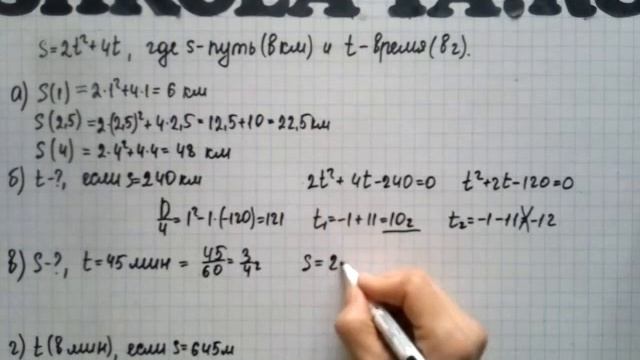 SHKOLA YA.RU
s=2t²+4t, где s-путь (в км) и t-время (в г).
а) S(1) = 2·1²+4·1 = 6 км
S(2,5) = 2·(2,5)²+4·2,5 = 12,5+10 = 22,5 км
S(4) = 2·4²+4·4 = 48 км
б) t-?, если s=240 км 2t²+4t-240=0 t²+2t-120=0
D/4 = 1²-1·(-120) = 121 t₁=-1+11=10г t₂=-1-11=-12
в) S-?, t=45 мин = 45/60 = 3/4 г S=2·
г) t (в мин), если S=645м